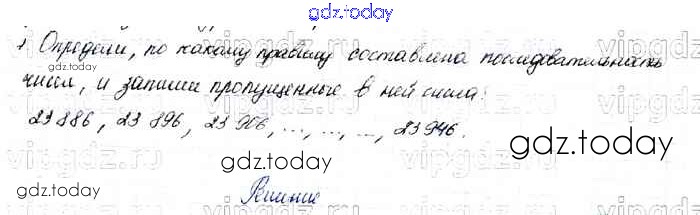 gdz.today
1 Определи, по какому правилу составлена последовательность
gdz.today
чисел, и запиши пропущенные в ней числа:
23 886, 23 896, 23 906, ..., ..., ..., 23 946.
gdz.today
gdz.today
gdz.today